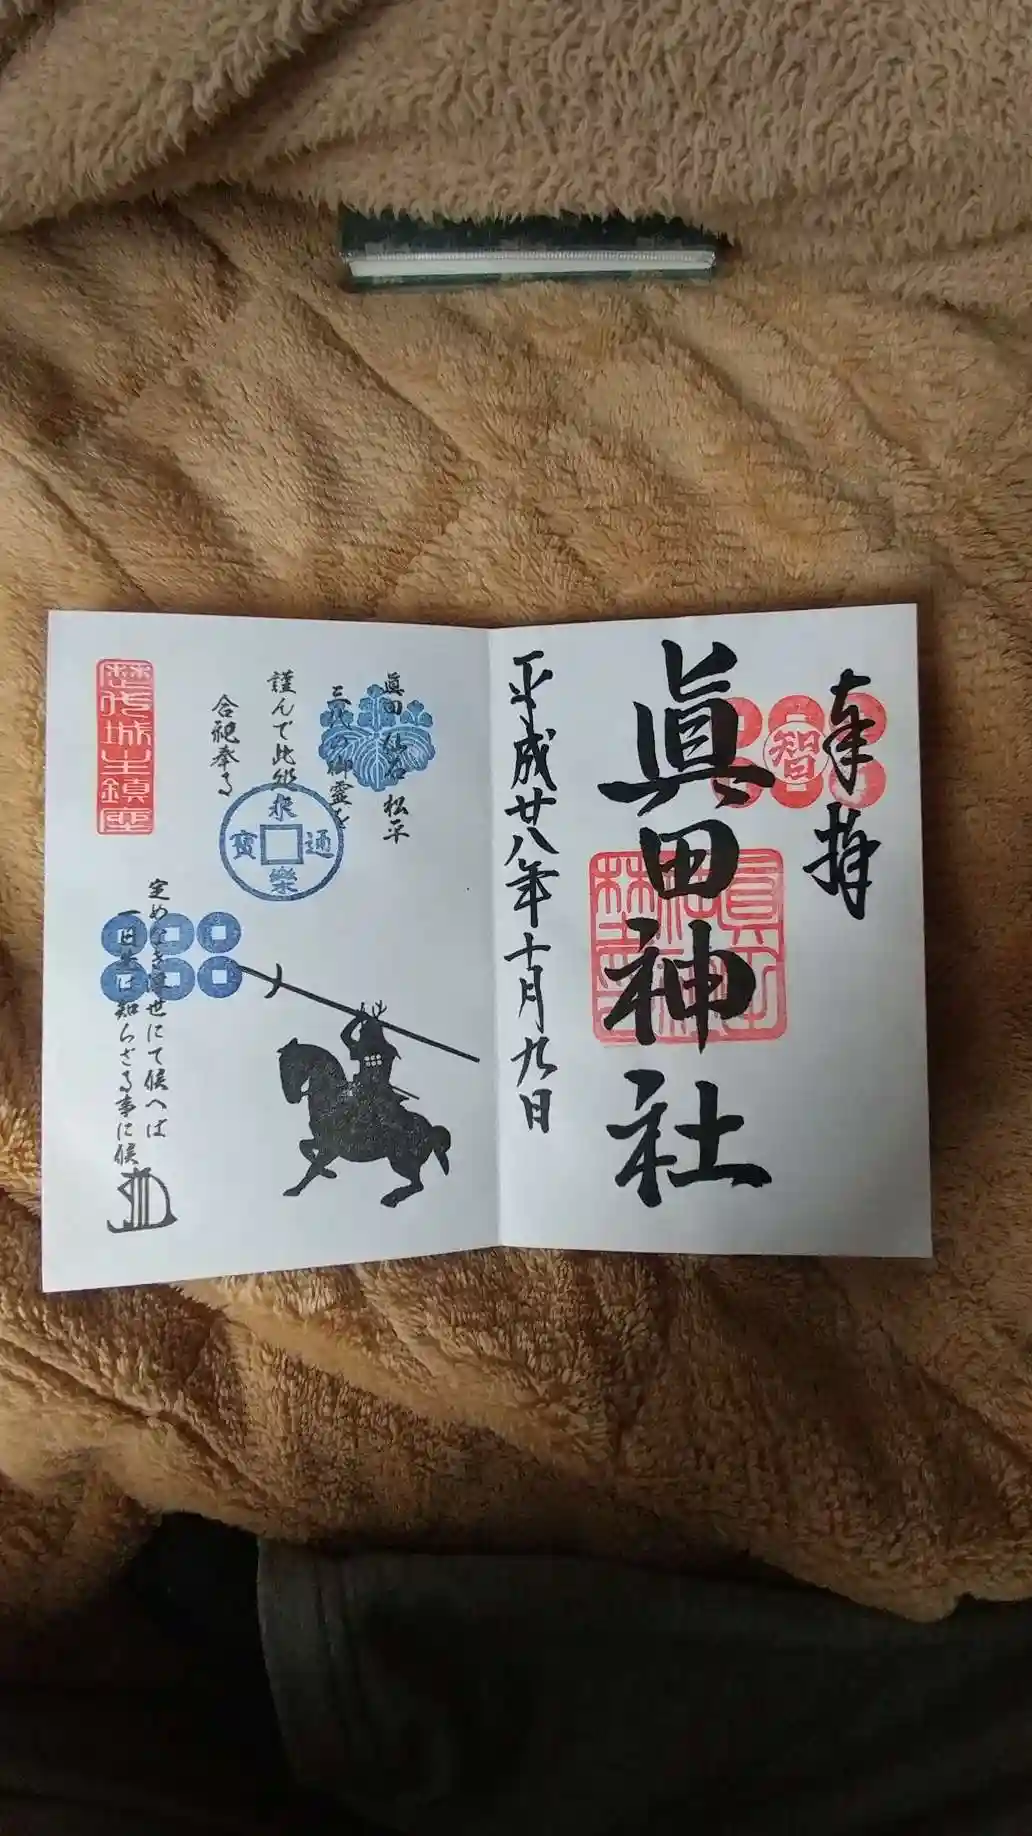 奉拝
智
眞田神社
平成廿八年十月九日
眞田 仙石 松平
三代の御霊を
謹んで此処に
合祀奉る
永樂通寳
歴代城主鎮座
定めなき浮世にて候へば
一日先は知らざる事に候